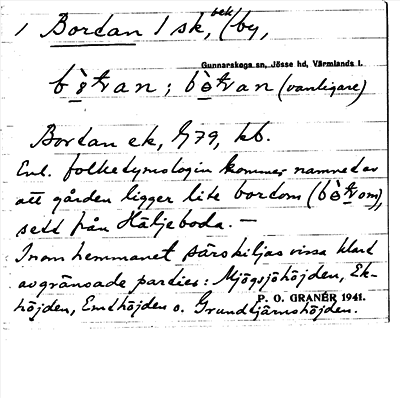 1 Bordan 1 sk, bek (by,
Gunnarskogs sn, Jösse hd, Värmlands l.
bo̱tran; bo̱tran (vanligare)
Bordan ek, G79, kb.
Enl. folketymologin kommer namnet av
att gården ligger lite bordom (bo̱tr om),
sett från Häljeboda. —
Inom hemmanet särskiljas vissa klart
avgränsade partier: Mjögsjöhöjden, Ek-
höjden, Emthöjden o. Grundtjärnshöjden.
P. O. GRANÉR 1941.